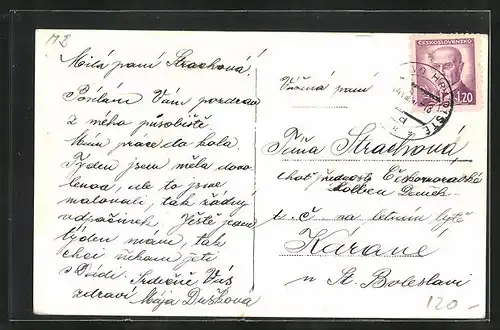 MB
Milá paní Strachová!
Posílám Vám pozdrav
z mého působiště
Mám práce do kola.
Týden jsem měla dovo-
lenou, ale to jsme
malovali, tak žádný
odpočinek. Ještě jeden
týden mám, tak
chci někam jeti
s Dádi. Srdečně Vás
zdraví Mája Dušková
ČESKOSLOVENSKO
1.20
HRADIŠTĚ
Vážená paní
Páña Strachová,
choť přednosty Českomoravská
Kolben Daněk
t. č. na letním bytě
Káraně
u St. Boleslavi
120-